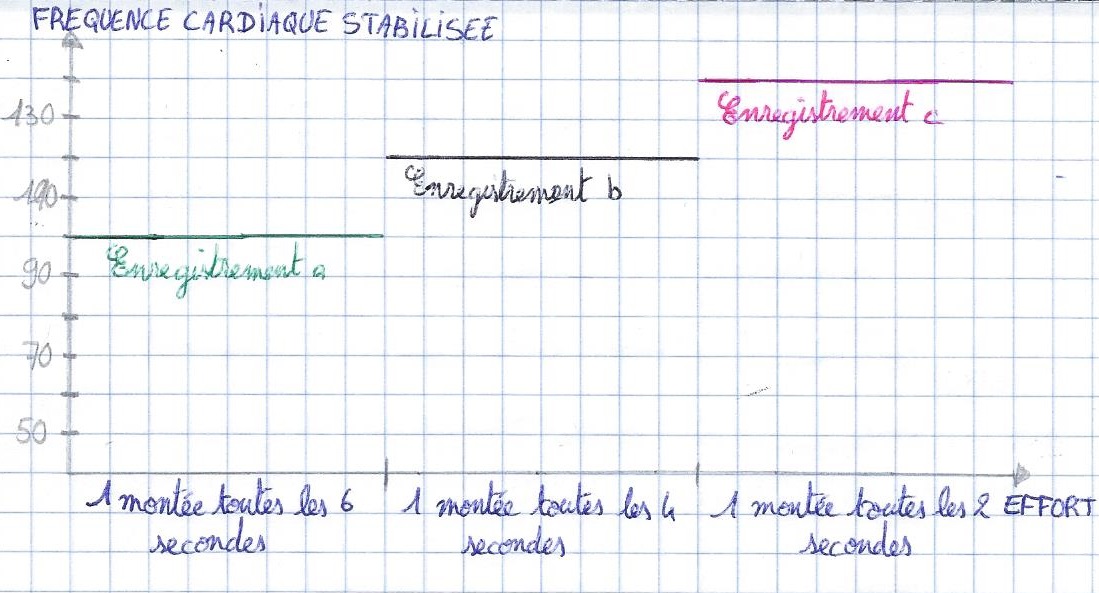 FREQUENCE CARDIAQUE STABILISEE
130
Enregistrement c
110
Enregistrement b
Enregistrement a
90
70
50
1 montée toutes les 6 secondes
1 montée toutes les 4 secondes
1 montée toutes les 2 secondes
EFFORT